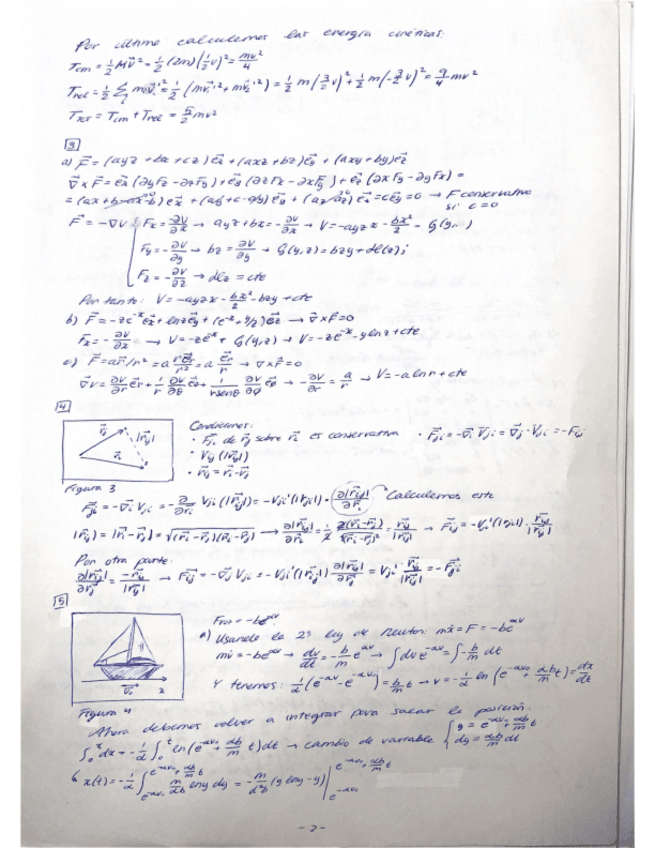 Por último calculemos las energía cinéticas:
Tcm = 1/2 M V² = 1/2 (2m)(1/2 v)² = mv²/4
Trel = 1/2 Σ mv'² = 1/2 (mv₁'² + mv₂'²) = 1/2 m(3/2 v)² + 1/2 m(-3/2 v)² = 9/4 mv²
TTOT = Tcm + Trel = 5/2 mv²
3
a) F = (ayz + bx + cz) ex + (axz + bz) ey + (axy + by) ez
∇ × F = ex (∂yFz - ∂zFy) + ey (∂zFx - ∂xFz) + ez (∂xFy - ∂yFx) =
= cey = 0 → F conservativa
si c = 0
F = -∇V { Fx = ∂V/∂x → ayz + bx = -∂V/∂x → V = -ayzx - bx²/2 - G(y,z)
Fy = -∂V/∂y → bz = ∂V/∂y → G(y,z) = bzy + dl(z);
Fz = -∂V/∂z → dlz = cte
Por tanto: V = -ayzx - bx²/2 - bzy + cte
b) F = -ze^-x ex + lnz ey + (e^-x + y/z) ez → ∇×F = 0
Fx = -∂V/∂x → V = -ze^-x + G(y,z) → V = -ze^-x - ylnz + cte
c) F = ar/r² = a r er/r² = a er/r → ∇×F = 0
∇V = ∂V/∂r er + 1/r ∂V/∂θ eθ + 1/rsenθ ∂V/∂φ → -∂V/∂r = a/r → V = -alnr + cte
4
Condiciones:
· Fji de rj sobre ri es conservativa · Fji = -∇i Vji = ∇j · Vji = -Fij
· Vij (|rij|)
· rij = ri - rj
rj |rij|
ri
Figura 3
Fji = -∇i Vji = -∂/∂ri Vji (|rij|) = -Vji'(|rij|) · ∂|rij|/∂ri Calculemos este
|rij| = |ri - rj| = √(ri - rj)(ri - rj) → ∂|rij|/∂ri = 1/2 2(ri - rj)/√(ri - rj)² = rij/|rij| → Fij = -Vji'(|rij|) · rij/|rij|
Por otra parte:
∂|rij|/∂rj = -rij/|rij| → Fij = -∇j Vji = -Vji'(|rij|) ∂|rij|/∂rj = Vji' · rij/|rij| = -Fji
5
Fv = -be^αv
a) Usando la 2ª ley de Neuton: mẍ = F = -be^αv
mv̇ = -be^αv → dv/dt = -b/m e^αv → ∫dv e^-αv = ∫-b/m dt
Y tenemos: 1/α (e^-αv - e^-αv₀) = b/m t → v = -1/α ln (e^-αv₀ + αb/m t) = dx/dt
v₀ x
Figura 4
Ahora debemos volver a integrar para sacar la posición:
∫₀ˣ dx = -1/α ∫₀ᵗ ln(e^-αv₀ + αb/m t) dt → cambio de variable { y = e^-αv₀ + αb/m t
dy = αb/m dt
↳ x(t) = -1/α ∫ m/αb lny dy = -m/α²b (y lny - y) | e^-αv₀ + αb/m t
e^-αv₀
- 2 -